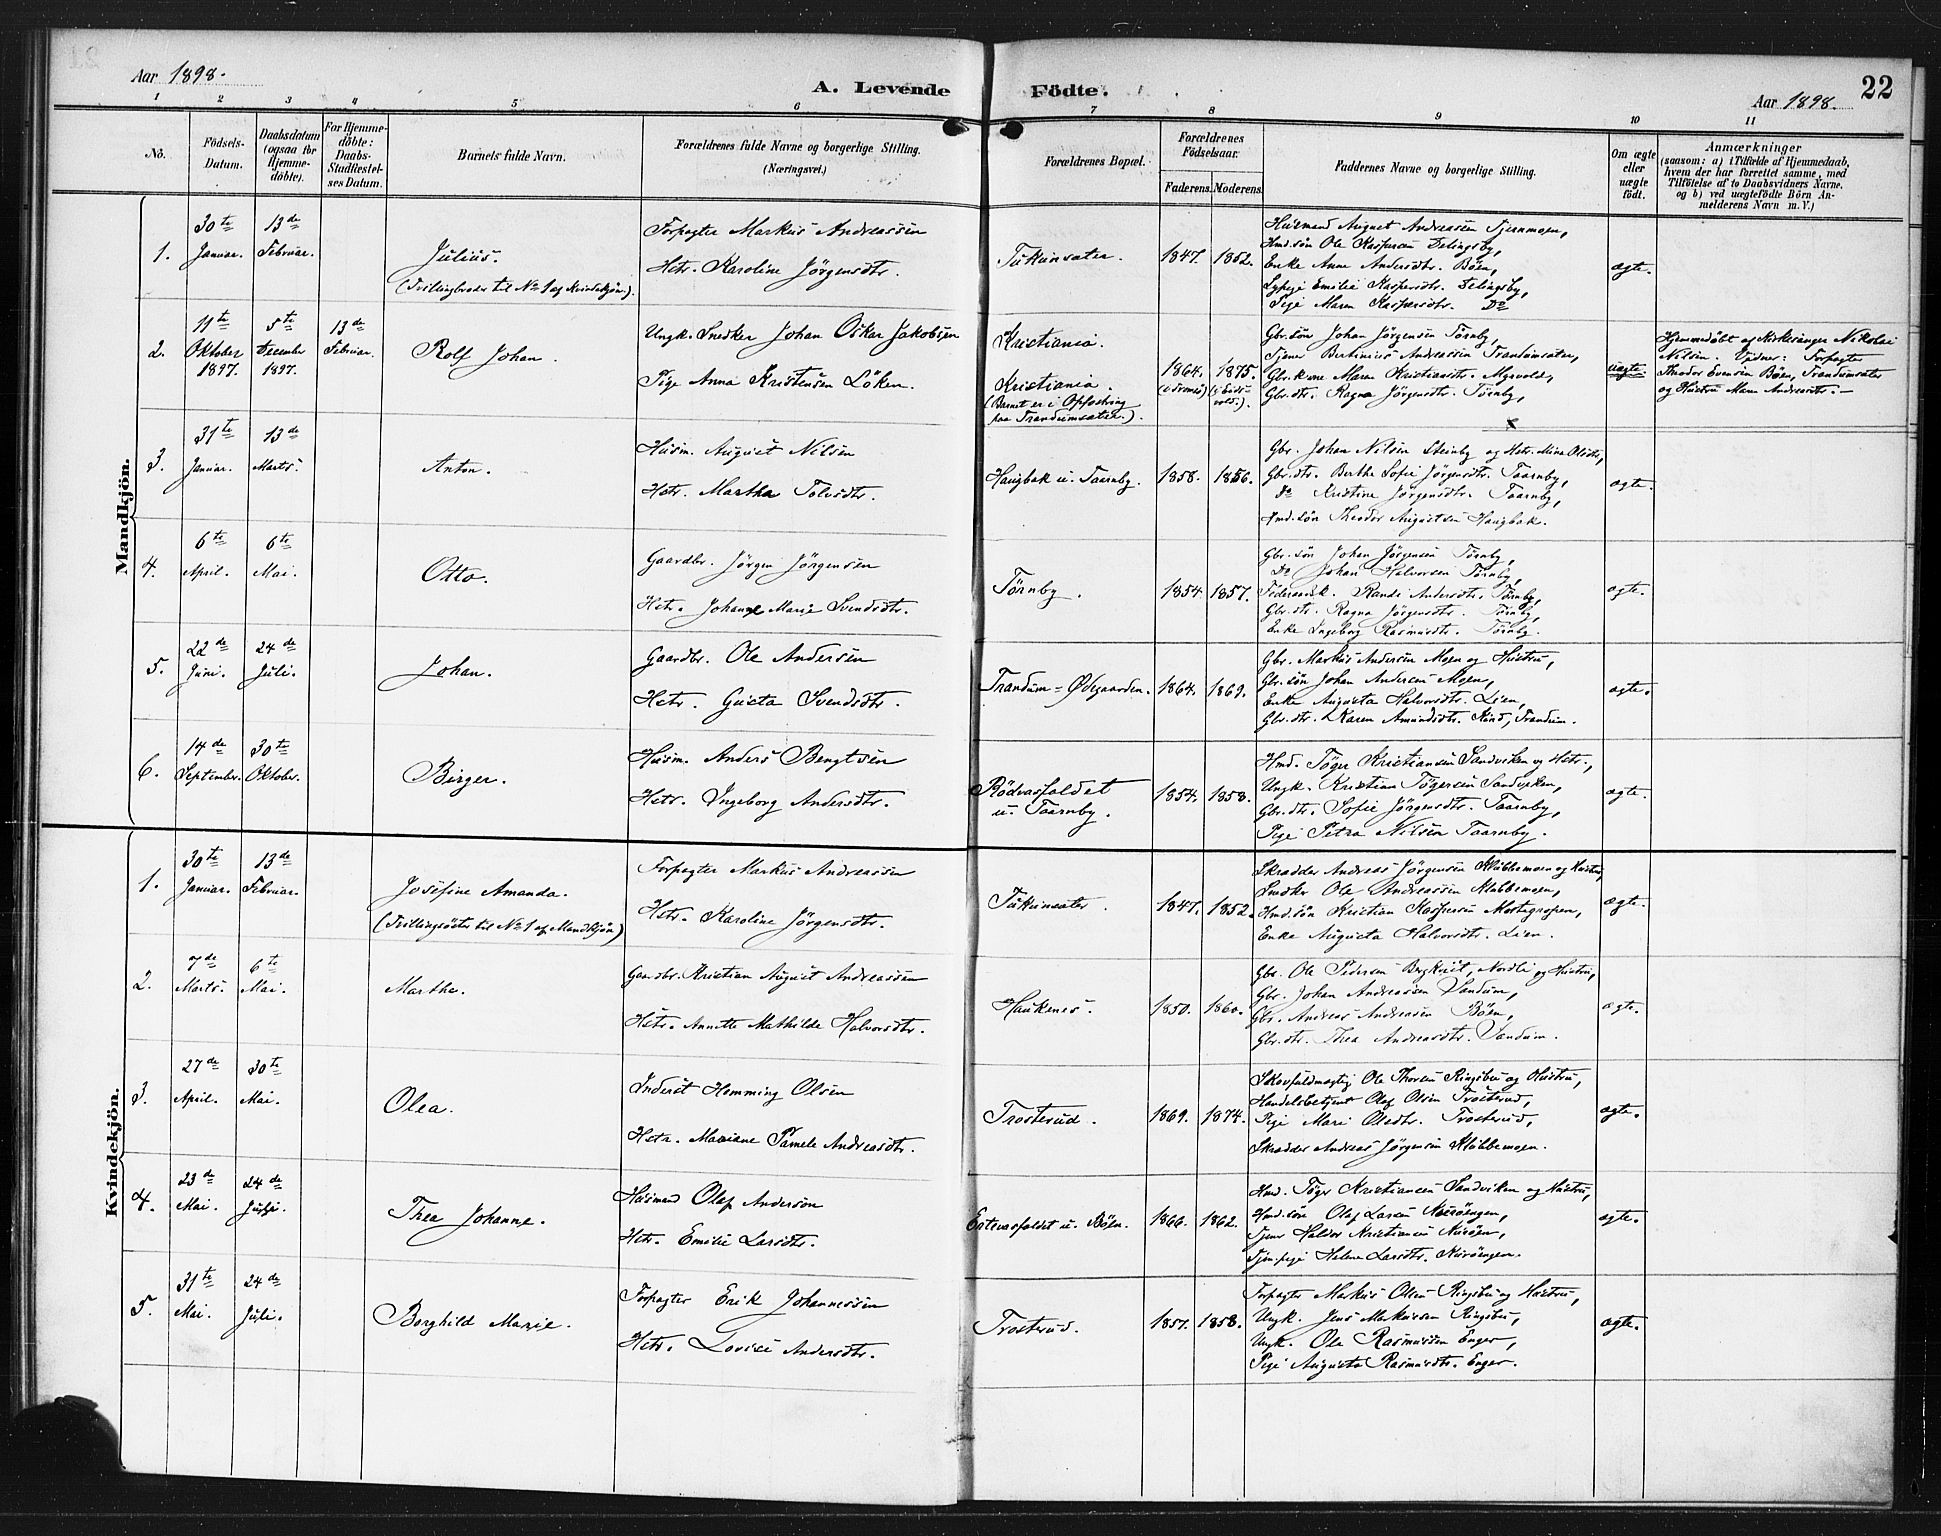 Aar 1898.
A. Levende Födte.
Aar 1898.
22
1 2 3 4 5 6 7 8 9 10 11
No.
Födsels-Datum.
Daabsdatum (ogsaa for Hjemme-döbte).
For Hjemme-döbte: Daabs-Stadfæstel-ses Datum.
Barnets fulde Navn.
Forældrenes fulde Navne og borgerlige Stilling. (Næringsvei.)
Forældrenes Bopæl.
Forældrenes Födselsaar.
Faderens. Moderens.
Faddernes Navne og borgerlige Stilling.
Om ægte eller uægte födt.
Anmærkninger
(saasom: a) i Tilfælde af Hjemmedaab,
hvem der har forrettet samme, med
Tilföielse af to Daabsvidners Navne.
og b) ved uægtefödte Börn An-
melderens Navn m. V.)
Mandkjön.
1.
30te Januar.
13de Februar.
Julius.
(Tvillingbroder til No 1 af Kvindekjön.)
Forpagter Markus Andreassen
Hstr. Karoline Jörgensdtr.
1847. 1852.
Husmand August Andreasen Tjernmoen,
Hmd.sön Ole Kaspersen Delingsby,
Enke Anne Andersdtr. Böen,
Sypige Emilie Kaspersdtr. Delingsby,
Pige Maren Kaspersdtr. Do
ægte.
2.
11te Oktober 1897.
5te December 1897.
13de Februar.
Rolf Johan.
Ungk. Snedker Johan Oskar Jakobsen
Pige Anna Kristensen Löken.
Kristiania.
Kristiania.
(Barnet er i Opfostring
paa Trandumsæter.).
1864. 1875.
Gbr.sön Johan Jörgensen Törnby,
Tjener Bertinius Andreassen Trandumsæter,
Gbr.kone Maren Kristiansdtr. Myrvold,
Gbr.dtr. Ragna Jörgensdtr. Törnby,
uægte.
Hjemmedöbt af Kirkesanger Nikolai
Nilsen. Vidner: Forpagter
Theodor Evensen Böen, Trandumsæter
og Hustru Maren Andreasdtr.
3.
31te Januar.
13de Marts.
Anton.
Husm. August Nilsen
Hstr. Martha Tolvsdtr.
Haugbak u. Taarnby.
1858. 1856.
Gbr. Johan Nilsen Steinby og Hstr. Mina Olsdtr,
Gbr.dtr. Berthe Sofie Jörgensdtr. Taarnby,
Do Kristine Jörgensdtr. Taarnby,
Hmd.sön Theodor Augustsen Haugbak.
ægte.
4.
6te April.
6te Mai.
Otto.
Gaardbr. Jörgen Jörgensen
Hstr. Johanne Marie Svendsdtr.
Törnby.
1854 1857.
Gbr.sön Johan Jörgensen Törnby,
Do Johan Halvorsen Törnby,
Föderaadsk. Randi Andersdtr. Törnby,
Gbr.dtr. Ragna Jörgensdtr. Törnby,
Enke Ingeborg Rasmusdtr. Törnby.
ægte.
5.
22de Juni.
24de Juli.
Johan.
Gaardbr. Ole Andersen
Hstr. Gusta Svendsdtr.
Trandum=Ödegaarden.
1864. 1869.
Gbr. Markus Andersen Moen og Hustru,
Gbr.sön Johan Andersen Moen,
Enke Augusta Halvorsdtr. Lien,
Gbr.dtr. Karen Amundsdtr. Kind, Trandum.
ægte.
6.
14de September.
30te Oktober.
Birger.
Husm. Anders Bengtsen
Hstr. Ingeborg Andersdtr.
Rödvasfaldet
u. Taarnby.
1854. 1858.
Hmd. Töger Kristiansen Sandviken og Hstr.,
Ungk. Kristian Tögersen Sandviken,
Gbr.dtr. Sofie Jörgensdtr. Taarnby,
Pige Petra Nilsen Taarnby.
ægte.
Kvindekjön.
1.
30te Januar.
13de Februar.
Josefine Amanda.
(Tvillingsöster til No 1 af Mandkjön)
Forpagter Markus Andreassen
Hstr. Karoline Jörgensdtr.
1847. 1852.
Skrædder Andreas Jörgensen Klubbemoen og Hustru,
Snedker Ole Andreassen Klubbemoen,
Hmd.sön Kristian Kaspersen Mortegropen,
Enke Augusta Halvorsdtr. Lien.
ægte.
2.
7de Marts.
6te Mai.
Marthe.
Gaardbr. Kristian August Andreassen
Hstr. Annette Mathilde Halvorsdtr.
Haukenes.
1850. 1860.
Gbr. Ole Pedersen Bergkvist, Nordli og Hustru,
Gbr. Johan Andreassen Sandum,
Gbr. Andreas Andreasen Böen,
Gbr.dtr. Thea Andreasdtr. Sandum.
ægte.
3.
27de April.
30te Mai.
Olea.
Inderst Hemming Olsen
Hstr. Mariane Pamele Andreasdtr.
Trosterud.
1869. 1874.
Skovfuldmægtig Ole Thorsen Ringsbu og Hustru,
Handelsbetjent Olaf Olsen Trosterud,
Pige Mari Olsdtr. Trosterud,
Skrædder Andreas Jörgensen Klubbemoen.
ægte.
4.
23de Mai.
24de Juli.
Thea Johanne.
Husmand Olaf Andersen
Hstr. Emilie Larsdtr.
1866. 1862.
Hmd. Töger Kristiansen Sandviken og Hustru,
Hmd.sön Olaf Larsen
Tjener Halvor Kristiansen
Tjen.pige Helene Larsdtr.
ægte.
5.
31te Mai.
24de Juli.
Borghild Marie.
Forpagter Erik Johannessen
Hstr. Lovise Andersdtr.
Trosterud.
1857. 1858.
Forpagter Markus Olsen Ringsbu og Hustru,
Ungk. Jens Markussen Ringsbu,
Ungk. Ole Rasmussen Enger,
Pige Augusta Rasmusdtr. Enger.
ægte.